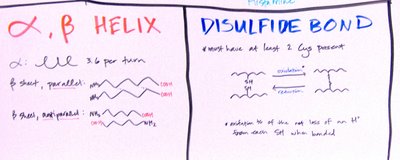 α, β HELIX
α: 3.6 per turn
β sheet, parallel:
NH2 COOH
NH2 COOH
β sheet, antiparallel:
NH2 COOH
COOH NH2
DISULFIDE BOND
*must have at least 2 Cys present
oxidation*
SH
SH
S
S
reduction
*oxidation b/c of the net loss of an H+
from each SH when bonded